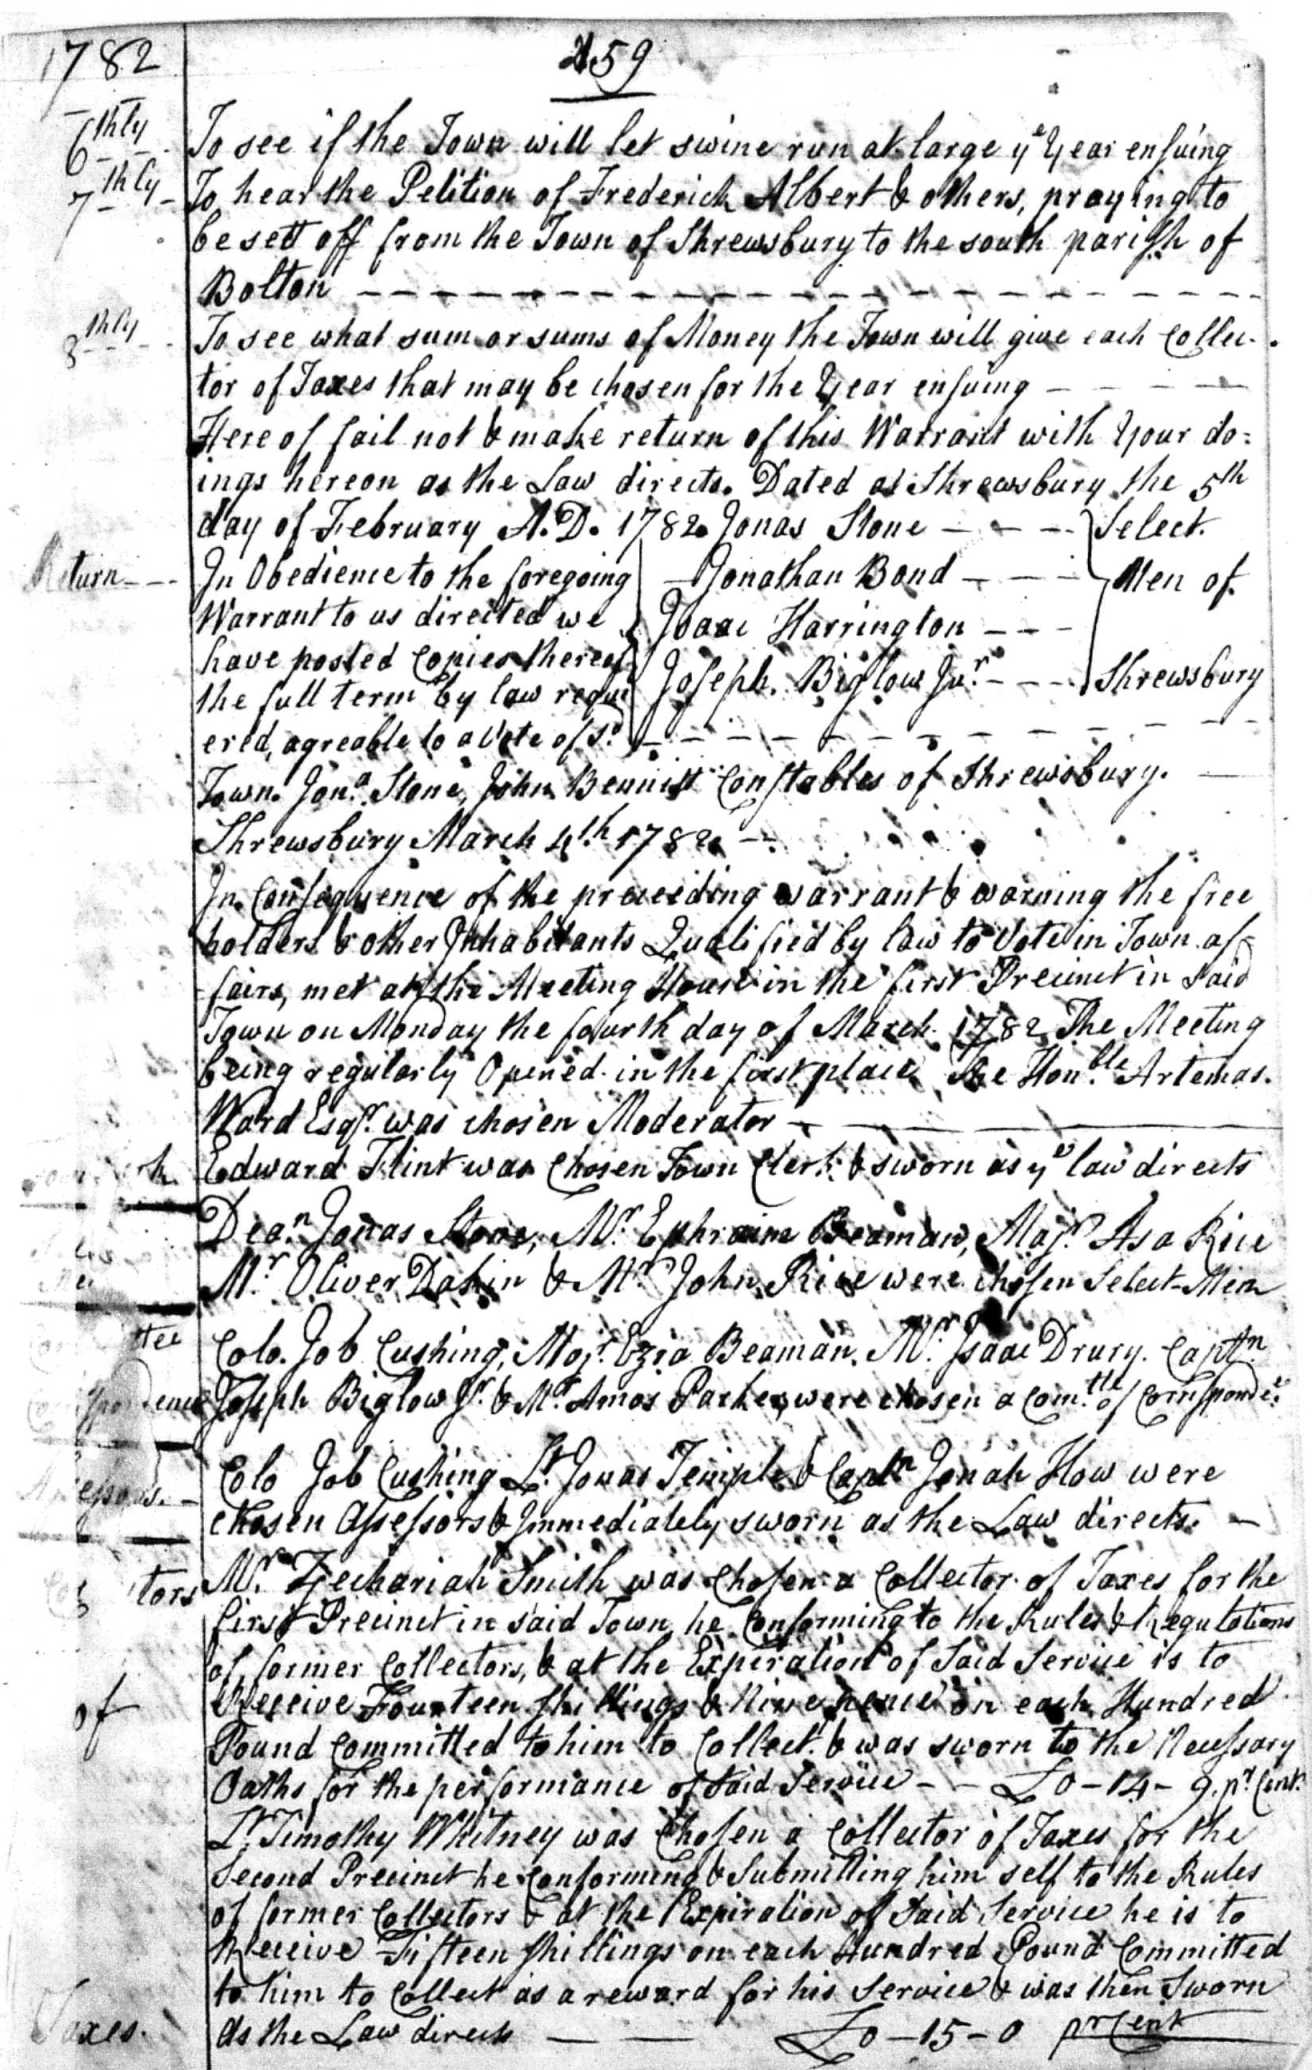 1782
259
6thly To see if the Town will let swine run at large ye Year ensuing
7thly To hear the Petition of Frederick Albert & others, praying to
be sett off from the Town of Shrewsbury to the south parish of
Bolton
8thly To see what sum or sums of Money the Town will give each Collec-
tor of Taxes that may be chosen for the Year ensuing
Here of fail not & make return of this Warrant with Your do=
ings hereon as the Law directs. Dated at Shrewsbury the 5th
day of February A.D. 1782. Jonas Stone Select.
Return In Obedience to the foregoing Jonathan Bond Men of
Warrant to us directed we Isaac Harrington
have posted Copies thereof
the full term by law requi Joseph Biglow Jur. Shrewsbury
ered, agreable to a Vote of sd.
Town. Jona. Stone, John Bennitt Constables of Shrewsbury.
Shrewsbury March 4th. 1782
In Consequence of the preceeding warrant & warning the free
holders & other Inhabitants Qualified by law to Vote in Town af-
fairs, met at the Meeting House in the first Precinct in said
Town on Monday the fourth day of March 1782 The Meeting
being regularly Opened in the first place The Honble. Artemas
Ward Esqr. was chosen Moderator
Edward Flint was Chosen Town Clerk & sworn as ye law directs
Dean. Jonas Stone, Mr. Ephraim Beaman, Majr. Asa Rice
Mr. Oliver Dakin & Mr. John Rice were chosen Select-Men
Colo. Job Cushing, Majr. Ezra Beaman. Mr. Isaac Drury. Captn
Joseph Biglow Jr. & Mr. Amos Parker, were chosen a Comtte. of Corresponde.
Colo Job Cushing Lt. Jonas Temple & Captn Jonah How were
Assessors. chosen Assessors & Immediately sworn as the Law directs.
Mr. Zechariah Smith was Chosen a Collector of Taxes for the
first Precinct in said Town he Conforming to the Rules & Regulations
of former Collectors, & at the Expiration of Said Service is to
of Receive Fourteen shillings & Nine pence on each Hundred
Pound Committed to him to Collect. & was sworn to the Necessary
Oaths for the performance of Said Service £0-14-9. pr Cent.
Lt. Timothy Whitney was Chosen a Collector of Taxes for the
Second Precinct he Conforming & Submitting him self to the Rules
of former Collectors & at the Expiration of Said Service he is to
Receive Fifteen shillings on each Hundred Pound Committed
to him to Collect as a reward for his Service & was then Sworn
Taxes. As the Law directs £0-15-0 pr Cent